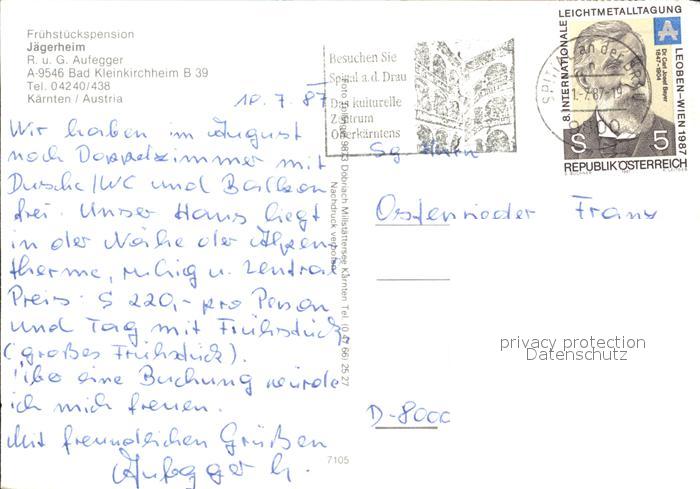 Frühstückspension
Jägerheim
R. u. G. Aufegger
A-9546 Bad Kleinkirchheim B 39
Tel. 04240/438
Kärnten / Austria
10.7.87
Wir haben im August
noch Doppelzimmer mit
Dusche/WC und Balkon
frei. Unser Haus liegt
in der Nähe der Alpen
therme, ruhig u. zentral
Preis: S 220,- pro Person
und Tag mit Frühstück
(großes Frühstück).
Über eine Buchung würde
ich mich freuen.
Mit freundlichen Grüßen
Aufegger G.
7105
9873 Döbriach Millstättersee Kärnten Tel. (0 47 66) 25 27
Nachdruck verboten
Besuchen Sie
Spittal a.d. Drau
Das kulturelle
Zentrum
Oberkärntens
SPITTAL an der DRAU
-7.87-19
9800
8. INTERNATIONALE LEICHTMETALLTAGUNG
LEOBEN-WIEN 1987
A
Dr. Carl Josef Bayer
1847-1904
S 5
REPUBLIK ÖSTERREICH
Sg. Herrn
Ostenrieder Franz
privacy protection
Datenschutz
D-8000